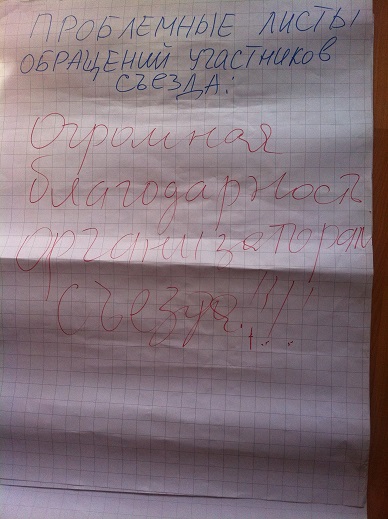 ПРОБЛЕМНЫЕ ЛИСТЫ
ОБРАЩЕНИЙ УЧАСТНИКОВ
СЪЕЗДА:
Огромная
благодарность
организаторам
съезда!!!